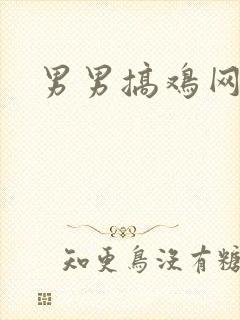 男男搞鸡网
知更鸟没有糖